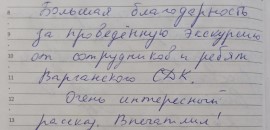 Большая благодарность
за проведённую экскурсию
от сотрудников и ребят
Варганского СДК.
Очень интересный
рассказ. Впечатлил!